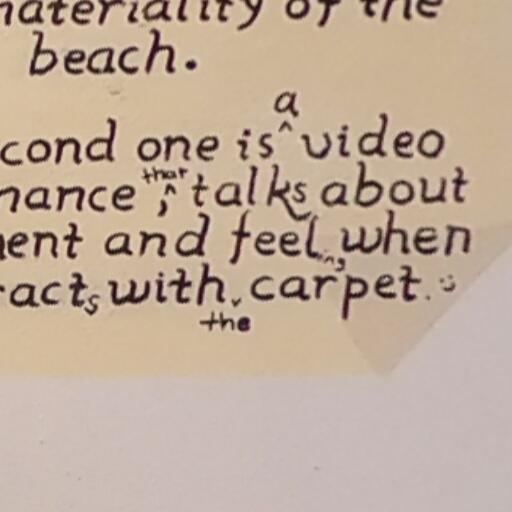 materiality of the
beach.
cond one is a video
mance that talks about
ent and feelings, when
acts with the carpet.